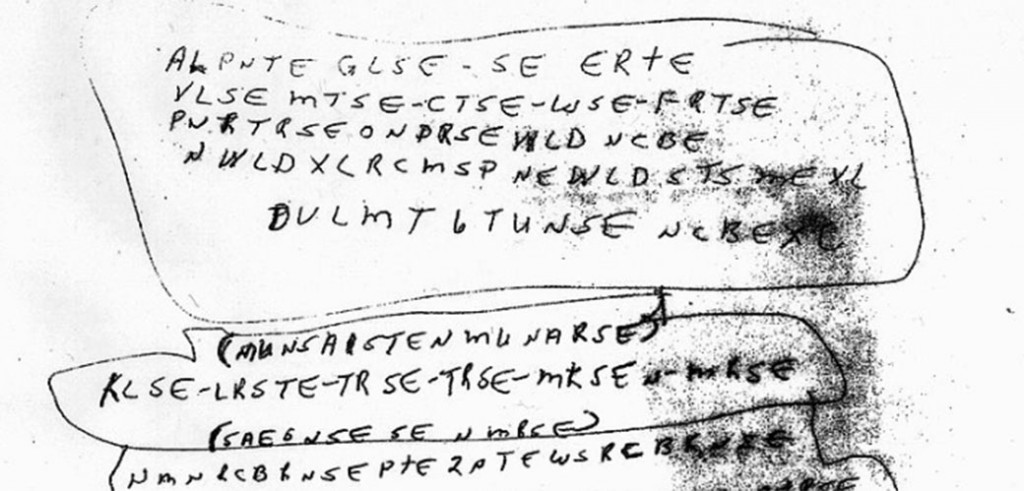 ALPNTE GLSE-SE ERTE
VLSE MTSE-CTSE-WSE-FRTSE
PNRTRSEONDRSEWLD NCBE
NWLDXLRCMSP NEWLDSTSMEXL
DULMT6TUNSE NCBEXC
(MUNSAISTENMUNARSE)
KLSE-LRSTE-TRSE-TRSE-MKSEN-MRSE
(SAE6NSE SE NMRSE)
NMNRCBRNSEPTE2PTEWSRCBRNSE